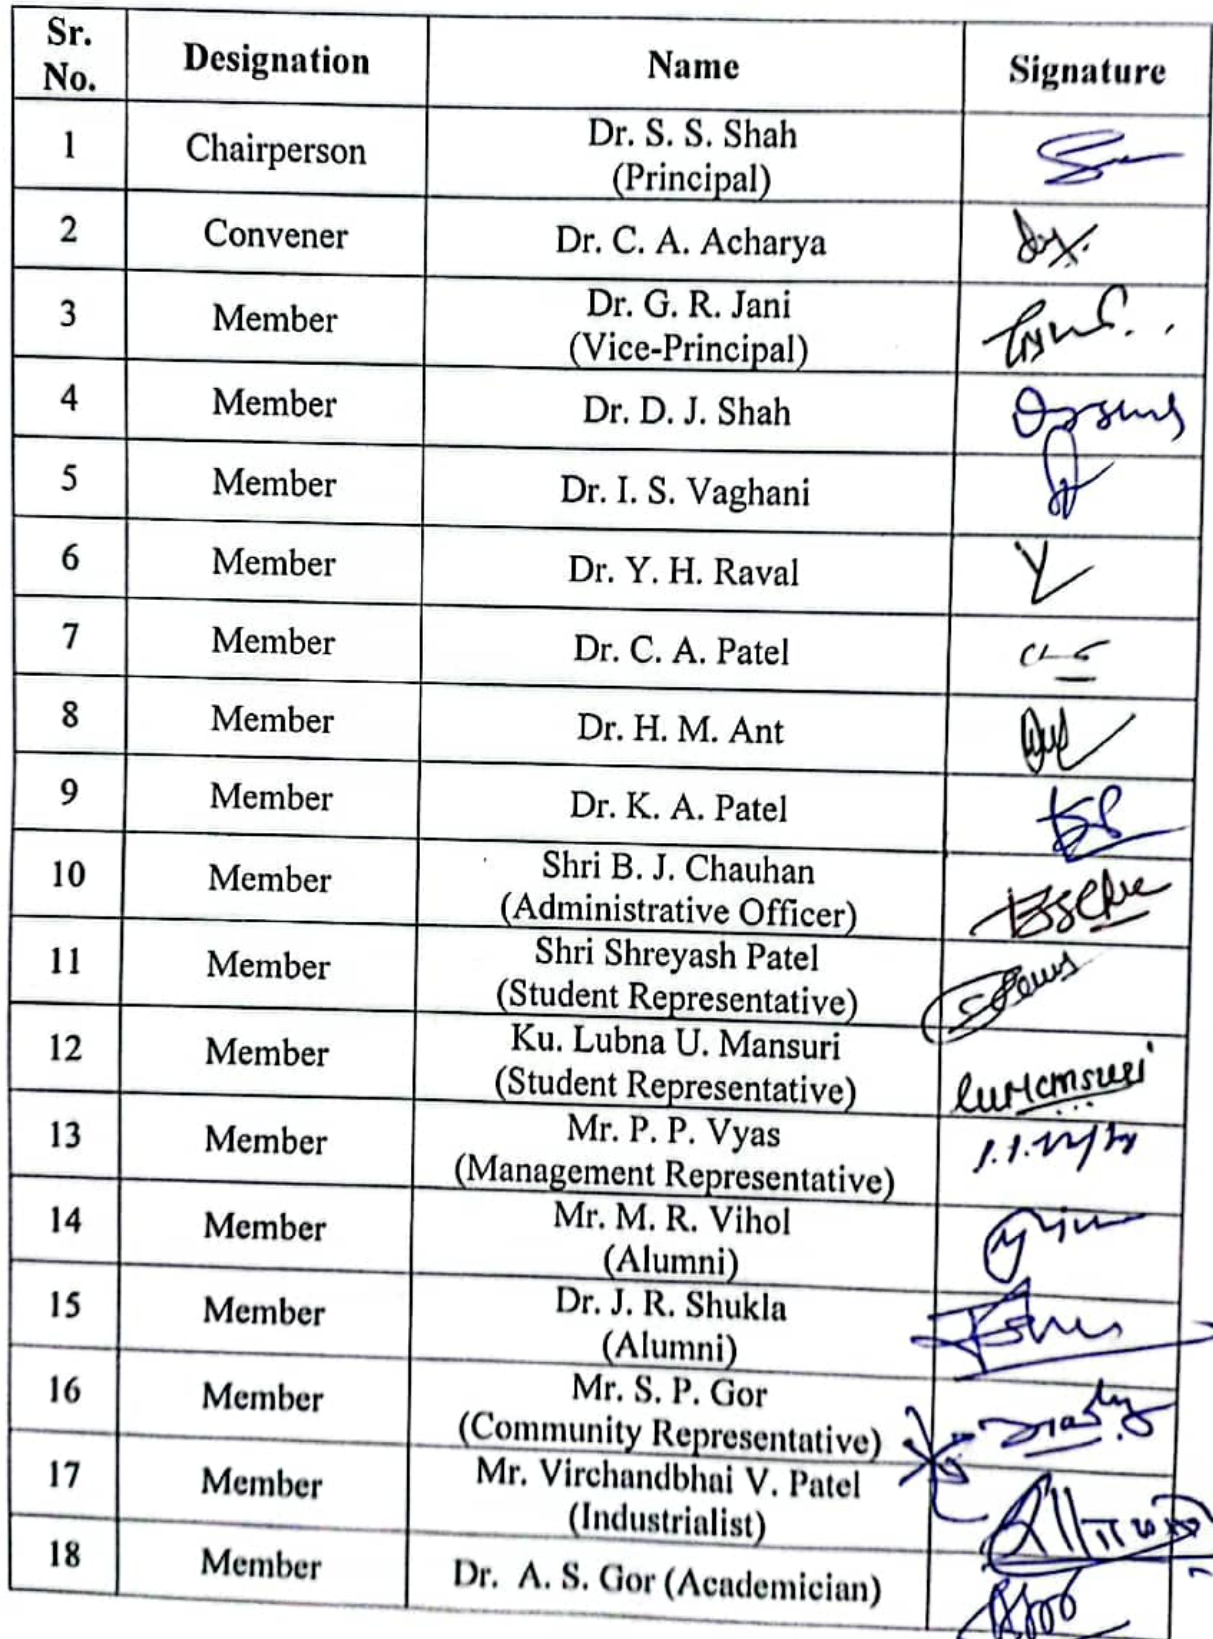 Sr. No. Designation Name Signature
1 Chairperson Dr. S. S. Shah
(Principal)
2 Convener Dr. C. A. Acharya
3 Member Dr. G. R. Jani
(Vice-Principal)
4 Member Dr. D. J. Shah
5 Member Dr. I. S. Vaghani
6 Member Dr. Y. H. Raval
7 Member Dr. C. A. Patel
8 Member Dr. H. M. Ant
9 Member Dr. K. A. Patel
10 Member Shri B. J. Chauhan
(Administrative Officer)
11 Member Shri Shreyash Patel
(Student Representative)
12 Member Ku. Lubna U. Mansuri
(Student Representative)
13 Member Mr. P. P. Vyas
(Management Representative)
14 Member Mr. M. R. Vihol
(Alumni)
15 Member Dr. J. R. Shukla
(Alumni)
16 Member Mr. S. P. Gor
(Community Representative)
17 Member Mr. Virchandbhai V. Patel
(Industrialist)
18 Member Dr. A. S. Gor (Academician)